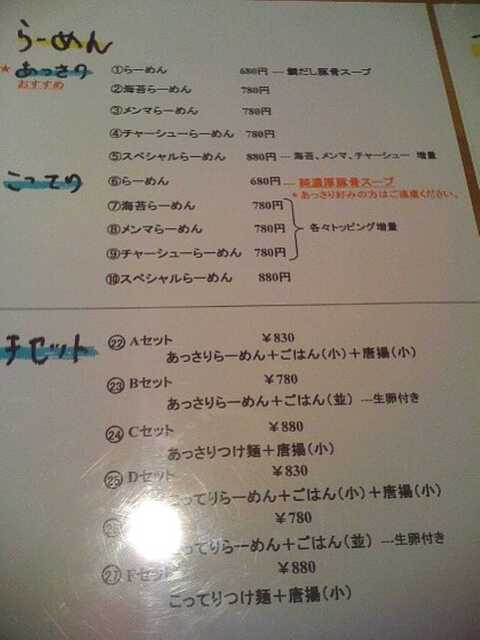 らーめん
★あっさり ①らーめん 680円 ― 鯛だし豚骨スープ
おすすめ ②海苔らーめん 780円
③メンマらーめん 780円
④チャーシューらーめん 780円
⑤スペシャルらーめん 880円 ― 海苔、メンマ、チャーシュー 増量
こってり ⑥らーめん 680円 ― 純濃厚豚骨スープ
*あっさり好みの方はご遠慮ください。
⑦海苔らーめん 780円
⑧メンマらーめん 780円 各々トッピング増量
⑨チャーシューらーめん 780円
⑩スペシャルらーめん 880円
セット ㉒Aセット ¥830
あっさりらーめん+ごはん(小)+唐揚(小)
㉓Bセット ¥780
あっさりらーめん+ごはん(並) ---生卵付き
㉔Cセット ¥880
あっさりつけ麺+唐揚(小)
㉕Dセット ¥830
こってりらーめん+ごはん(小)+唐揚(小)
¥780
こってりらーめん+ごはん(並) ---生卵付き
㉗Fセット ¥880
こってりつけ麺+唐揚(小)